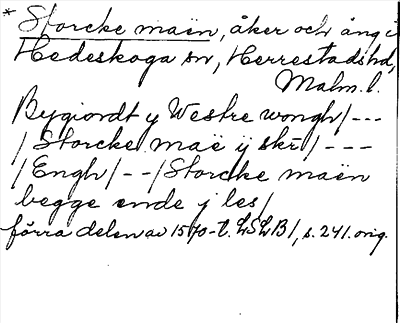 * Storcke maën, åker och äng i
Hedeskoga sn, Herrestads hd,
Malm. l.
Bygiordt y Westre wongh/---
/ Storcke maë ij skr/---
/Engh/--/Storcke maën
begge ende j les/
förra delen av 1570-t. LSLB1, s. 241. orig.